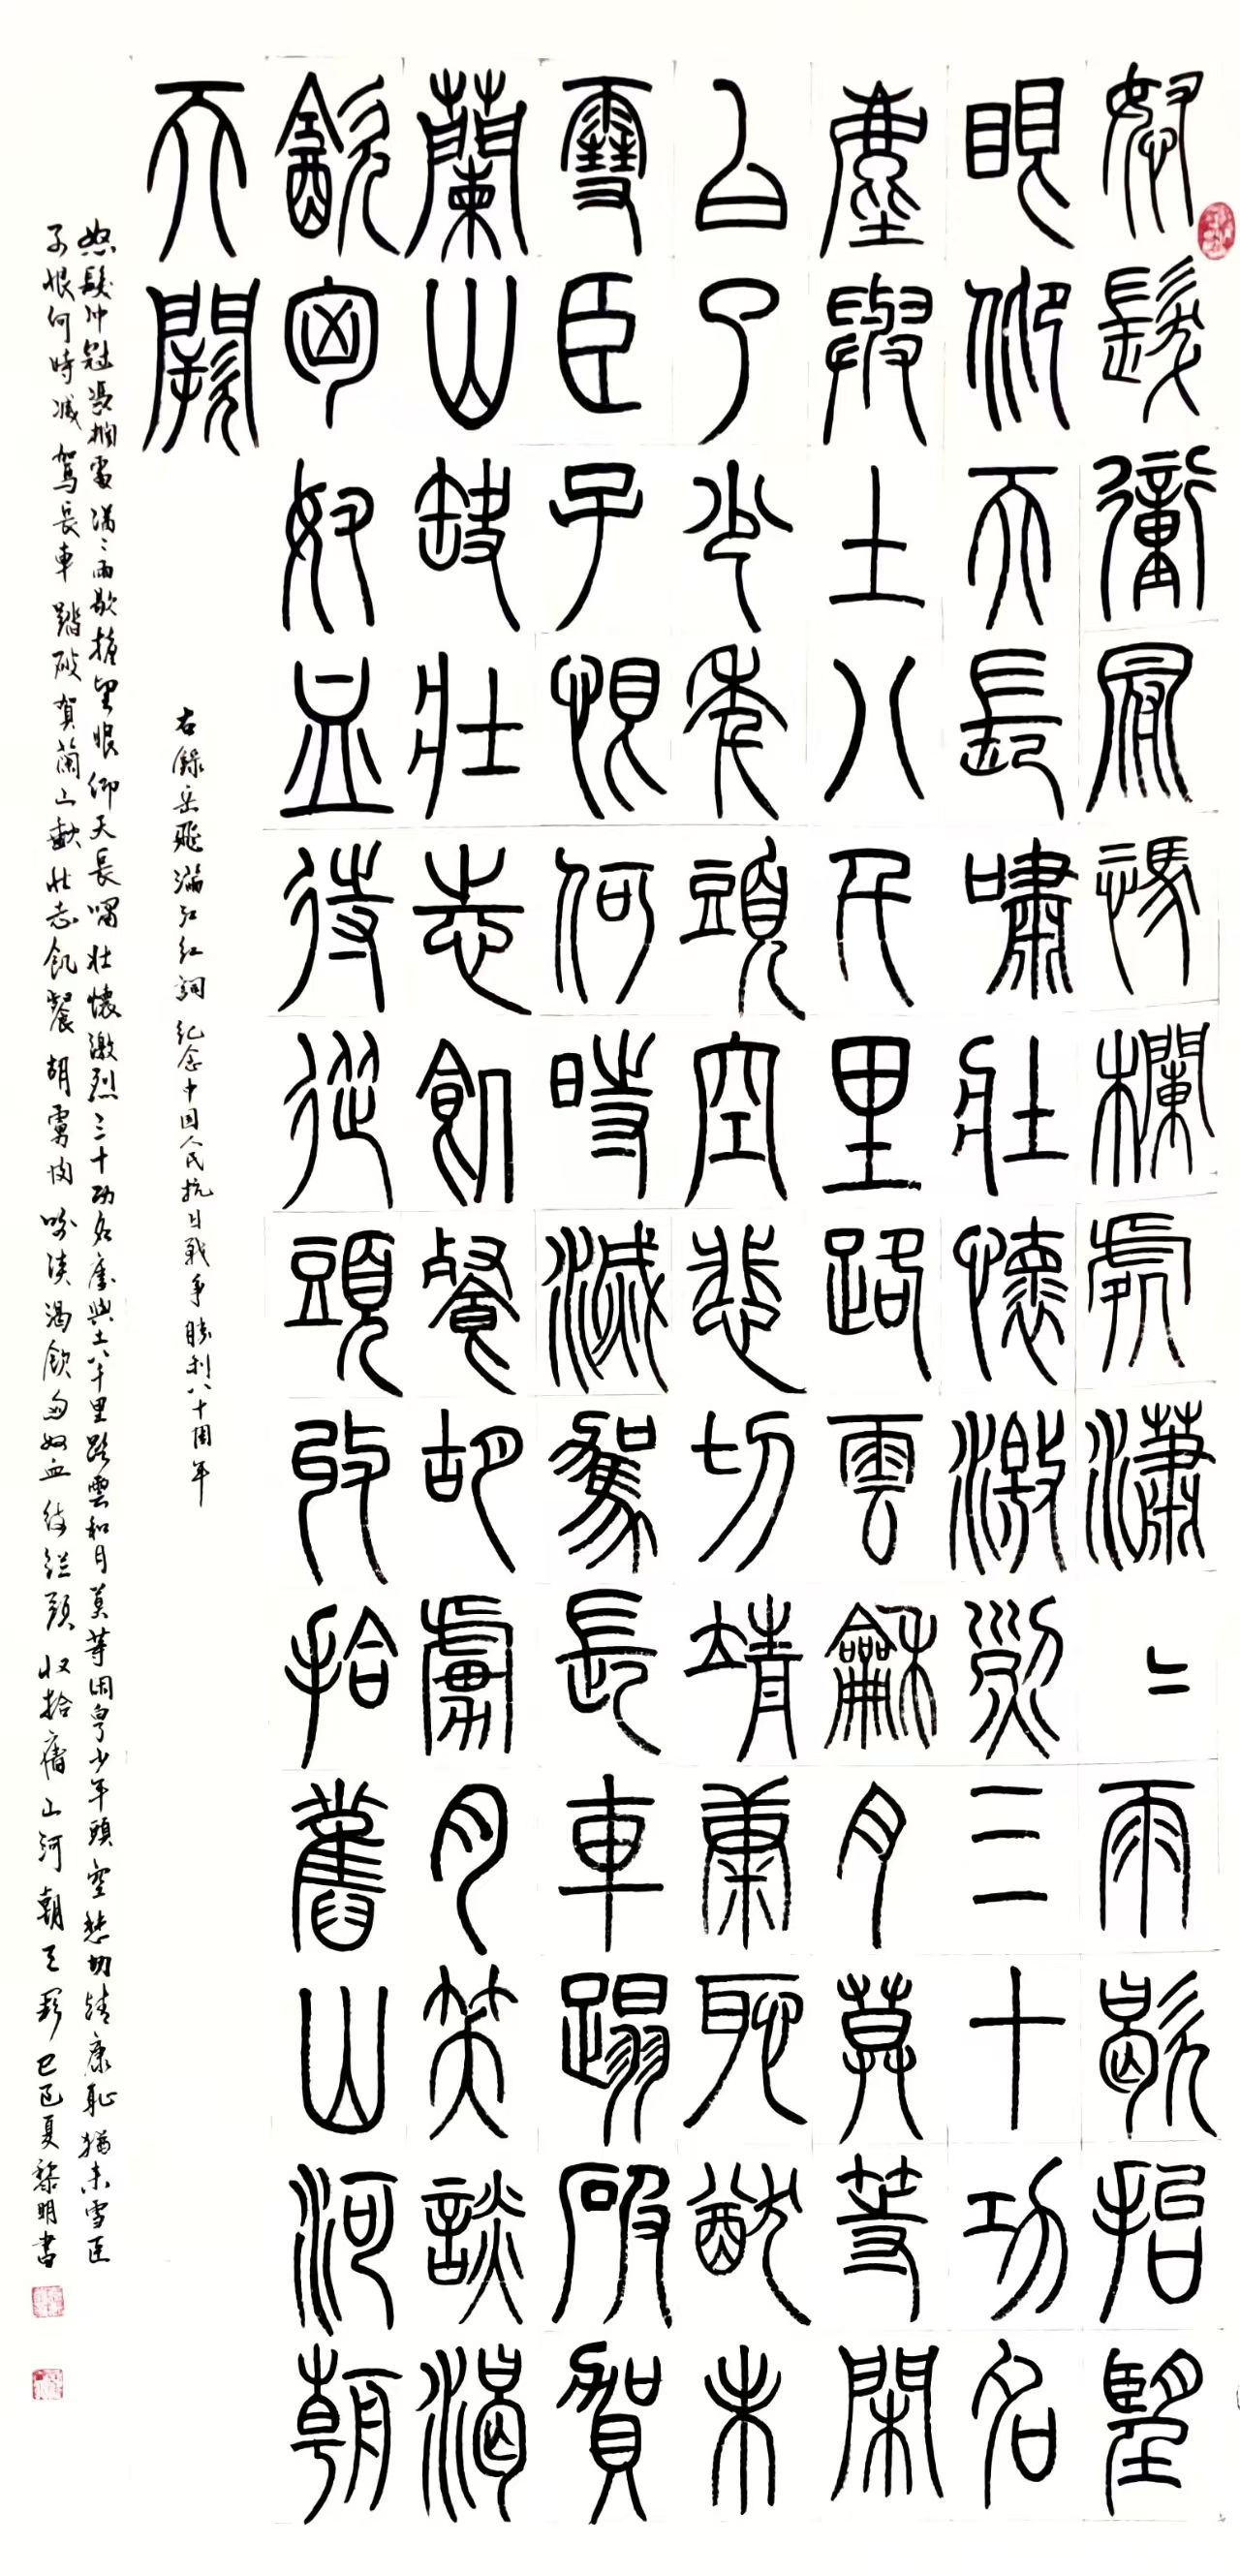 怒髮衝冠憑欄處瀟〻雨歇抬望
眼仰天長嘯壯懷激烈三十功名
塵與土八千里路雲龢月莫等閑
白了少年頭空悲切靖康恥猶未
雪臣子恨何時滅駕長車蹋破賀
蘭山缺壯志飢餐胡虜肉笑談渴
飲匈奴血待從頭收拾舊山河朝
天闕
右錄岳飛滿江红詞 纪念中国人民抗日戰争勝利八十周年
怒髮冲冠憑欄處潇〻雨歇擡望眼仰天長嘯壯懷激烈三十功名塵與土八千里路雲和月莫等闲白了少年頭空悲切靖康耻猶未雪臣
子恨何時滅駕長車踏破賀蘭山缺壯志飢餐胡虜肉笑談渴飲匈奴血待從頭收拾舊山河朝天闕 乙巳夏黎明書